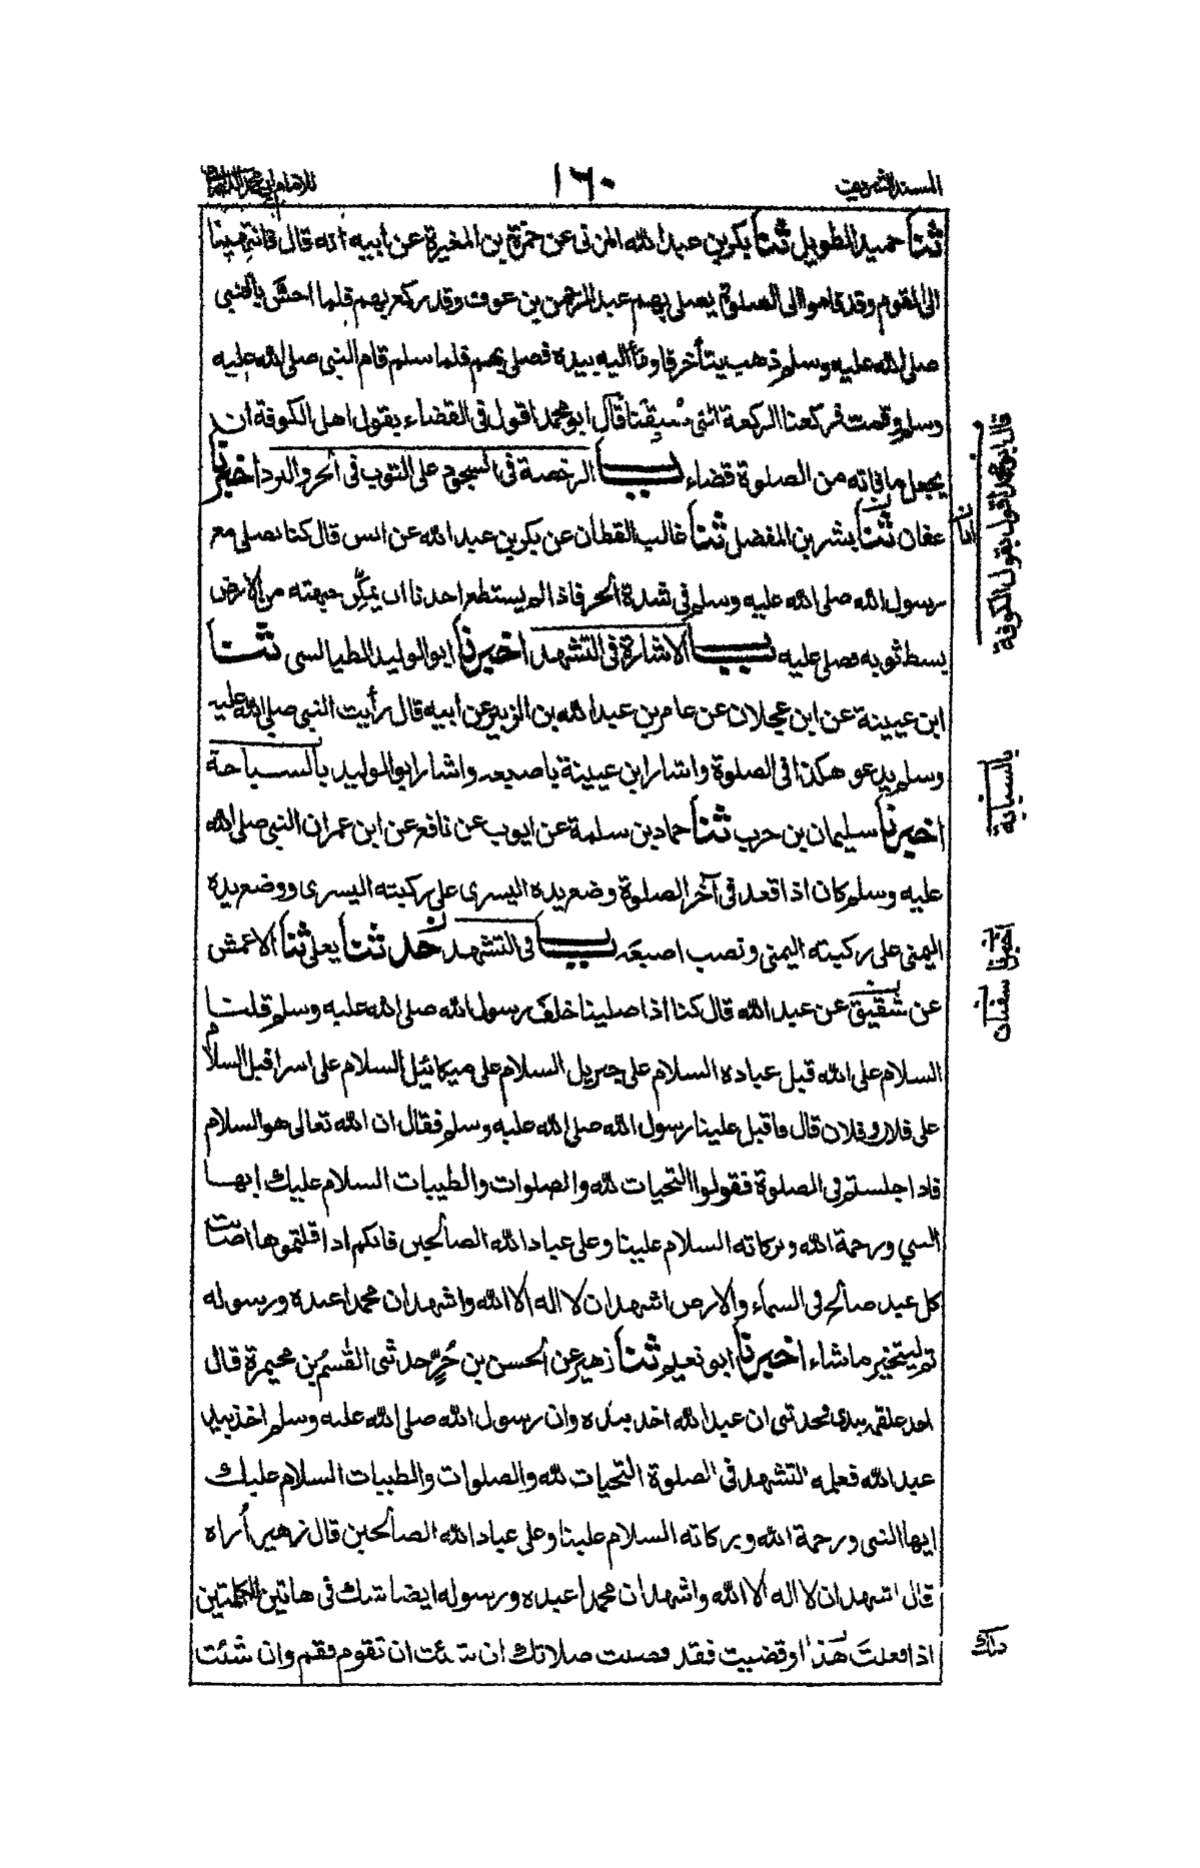 المسند الشريف
١٦٠
للامام ابي محمد الدارمي
ثنا حميد الطويل ثنا بكر بن عبد الله المزنى عن حمزة بن المغيرة عن ابيه انه قال فانتهينا
الى القوم وقد قاموا الى الصلوة يصلى بهم عبد الرحمن بن عوف وقد ركع بهم فلما احسّ بالنبى
صلى الله عليه وسلم ذهب يتأخر فاومأ اليه بيده فصلى بهم فلما سلم قام النبى صلى الله عليه
وسلم وقمت فركعنا الركعة التى سُبِقْنا قال ابو محمد اقول فى القضاء بقول اهل الكوفة ان
يجعل ما فاته من الصلوة قضاء باب الرخصة فى السجود على الثوب فى الحر والبرد اخبرنا
عفان ثنا بشر بن المفضل ثنا غالب القطان عن بكر بن عبد الله عن انس قال كنا نصلى مع
رسول الله صلى الله عليه وسلم فى شدة الحر فاذا لم يستطع احدنا ان يمكّن جبهته من الارض
بسط ثوبه فصلى عليه باب الاشارة فى التشهد اخبرنا ابو الوليد الطيالسى ثنا
ابن عيينة عن ابن عجلان عن عامر بن عبد الله بن الزبير عن ابيه قال رأيت النبى صلى الله عليه
وسلم يدعو هكذا فى الصلوة واشار ابن عيينة باصبعه واشار ابو الوليد بالسباحة
اخبرنا سليمان بن حرب ثنا حماد بن سلمة عن ايوب عن نافع عن ابن عمر ان النبى صلى الله
عليه وسلم كان اذا قعد فى آخر الصلوة وضع يده اليسرى على ركبته اليسرى ووضع يده
اليمنى على ركبته اليمنى ونصب اصبعه باب فى التشهد حدثنا يعلى ثنا الاعمش
عن شقيق عن عبد الله قال كنا اذا صلينا خلف رسول الله صلى الله عليه وسلم قلنا
السلام على الله قبل عباده السلام على جبريل السلام على ميكائيل السلام على اسرافيل السلام
على فلان وفلان قال فاقبل علينا رسول الله صلى الله عليه وسلم فقال ان الله تعالى هو السلام
فاذا جلستم فى الصلوة فقولوا التحيات لله والصلوات والطيبات السلام عليك ايها
النبي ورحمة الله وبركاته السلام علينا وعلى عباد الله الصالحين فانكم اذا قلتموها اصابت
كل عبد صالح فى السماء والارض اشهد ان لا اله الا الله واشهد ان محمدا عبده ورسوله
ثم ليتخير ما شاء اخبرنا ابو نعيم ثنا زهير عن الحسن بن حُرٍّ حدثنى القٰسم بن مخيمرة قال
اخذ علقمة بيدى فحدثنى ان عبد الله اخذ بيده وان رسول الله صلى الله عليه وسلم اخذ بيد
عبد الله فعلمه التشهد فى الصلوة التحيات لله والصلوات والطيبات السلام عليك
ايها النبى ورحمة الله وبركاته السلام علينا وعلى عباد الله الصالحين قال زهير أُراه
قال اشهد ان لا اله الا الله واشهد ان محمدا عبده ورسوله ايضا شك فى هاتين الكلمتين
اذا فعلتَ هذا او قضيت فقد قضيت صلاتك ان شئت ان تقوم فقم وان شئت
قال ابو محمد اقول بقول الكوفة
انا
بالسبابة
اخبرنا سفيان
ذلك